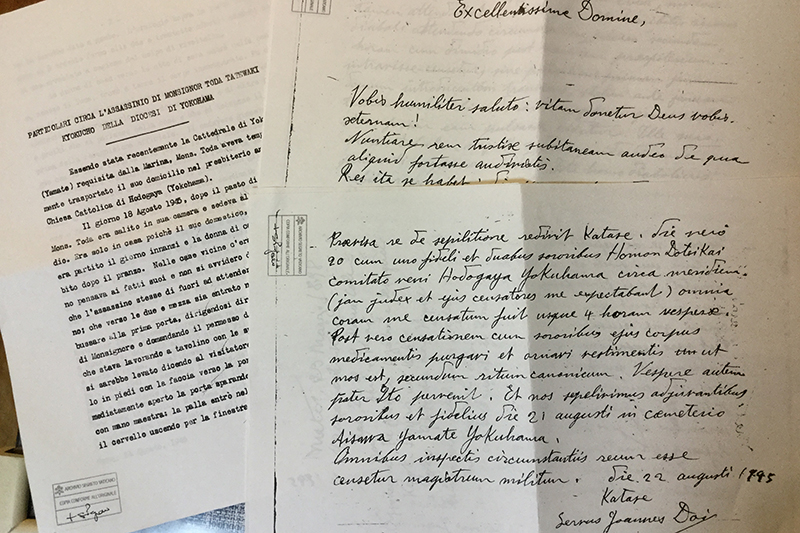 PARTICOLARI CIRCA L'ASSASSINIO DI MONSIGNOR TODA TATEWAKI
KYOKUCHO DELLA DIOCESI DI YOKOHAMA
Essendo stata recentemente la Cattedrale di Yok
(Yamate) requisita dalla Marina, Mons. Toda aveva temp
mente trasportato il suo domicilio nel presbiterio an
Chiesa Cattolica di Hodogaya (Yokohama).
Il giorno 18 Agosto 1945, dopo il pasto di
Mons. Toda era salito in sua camera e sedeva al
dio. Era solo in casa poichè il suo domestico,
era partito il giorno innanzi e la donna di ce
bito dopo il pranzo. Nelle case vicine c'er
no pensava ai fatti suoi e non si avvidero d
che l'assassino stesse di fuori ad attender
no; che verso le due e mezza sia entrato n
bussare alla prima porta, dirigendosi dir
di Monsignore e domandando il permesso d
che stava lavorando a tavolino con le s
si sarebbe levato dicendo al visitatore
lo in piedi con la faccia verso la por
mediatamente aperto la porta sparando
con mano maestra: la palla entrò nel
il cervello uscendo per la finestra
ARCHIVIO SEGRETO VATICANO
COPIA CONFORME ALL'ORIGINALE
Excellentissime Domine,
Vobis humiliter saluto: vitam donetur Deus vobis
æternam!
Nuntiare rem tristize subitaneam audeo de qua
aliquid fortasse audivistis.
Res ita se habet
ARCHIVIO SEGRETO VATICANO
COPIA CONFORME ALL'ORIGINALE
Prævisa re de sepilitione redivit Katase. die vero
20 cum uno fideli et duabus sororibus Homon Dotsikai
comitato veni Hodogaya Yokuhama circa meridiem.
(jam judex et ejus censatores me expectabant) omnia
coram me censatum fuit usque 4 horam vesperæ.
Post vero censationem cum sororibus ejus corpus
medicamentis purgavi et ornavi vestimentis
mos est, secundum ritum canonicum. Vespere autem
pater Ito pervenit. Et nos sepelivimus adjuvantibus
sororibus et fidelius die 21 augusti in cæmeterio
Aisawa Yamate Yokuhama.
Omnibus inspectis circumstantiis reum esse
censetur magistrum militum. die 22 augusti 1945
Katase
Servus Joannes Doi